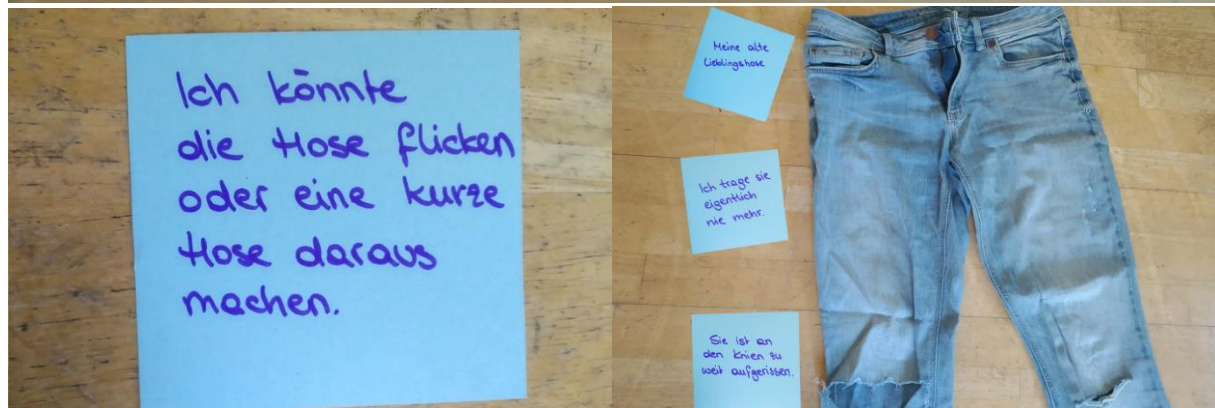 Ich könnte
die Hose flicken
oder eine kurze
Hose daraus
machen.
Meine alte
Lieblingshose
Ich trage sie
eigentlich
nie mehr.
Sie ist an
den Knien zu
weit aufgerissen.